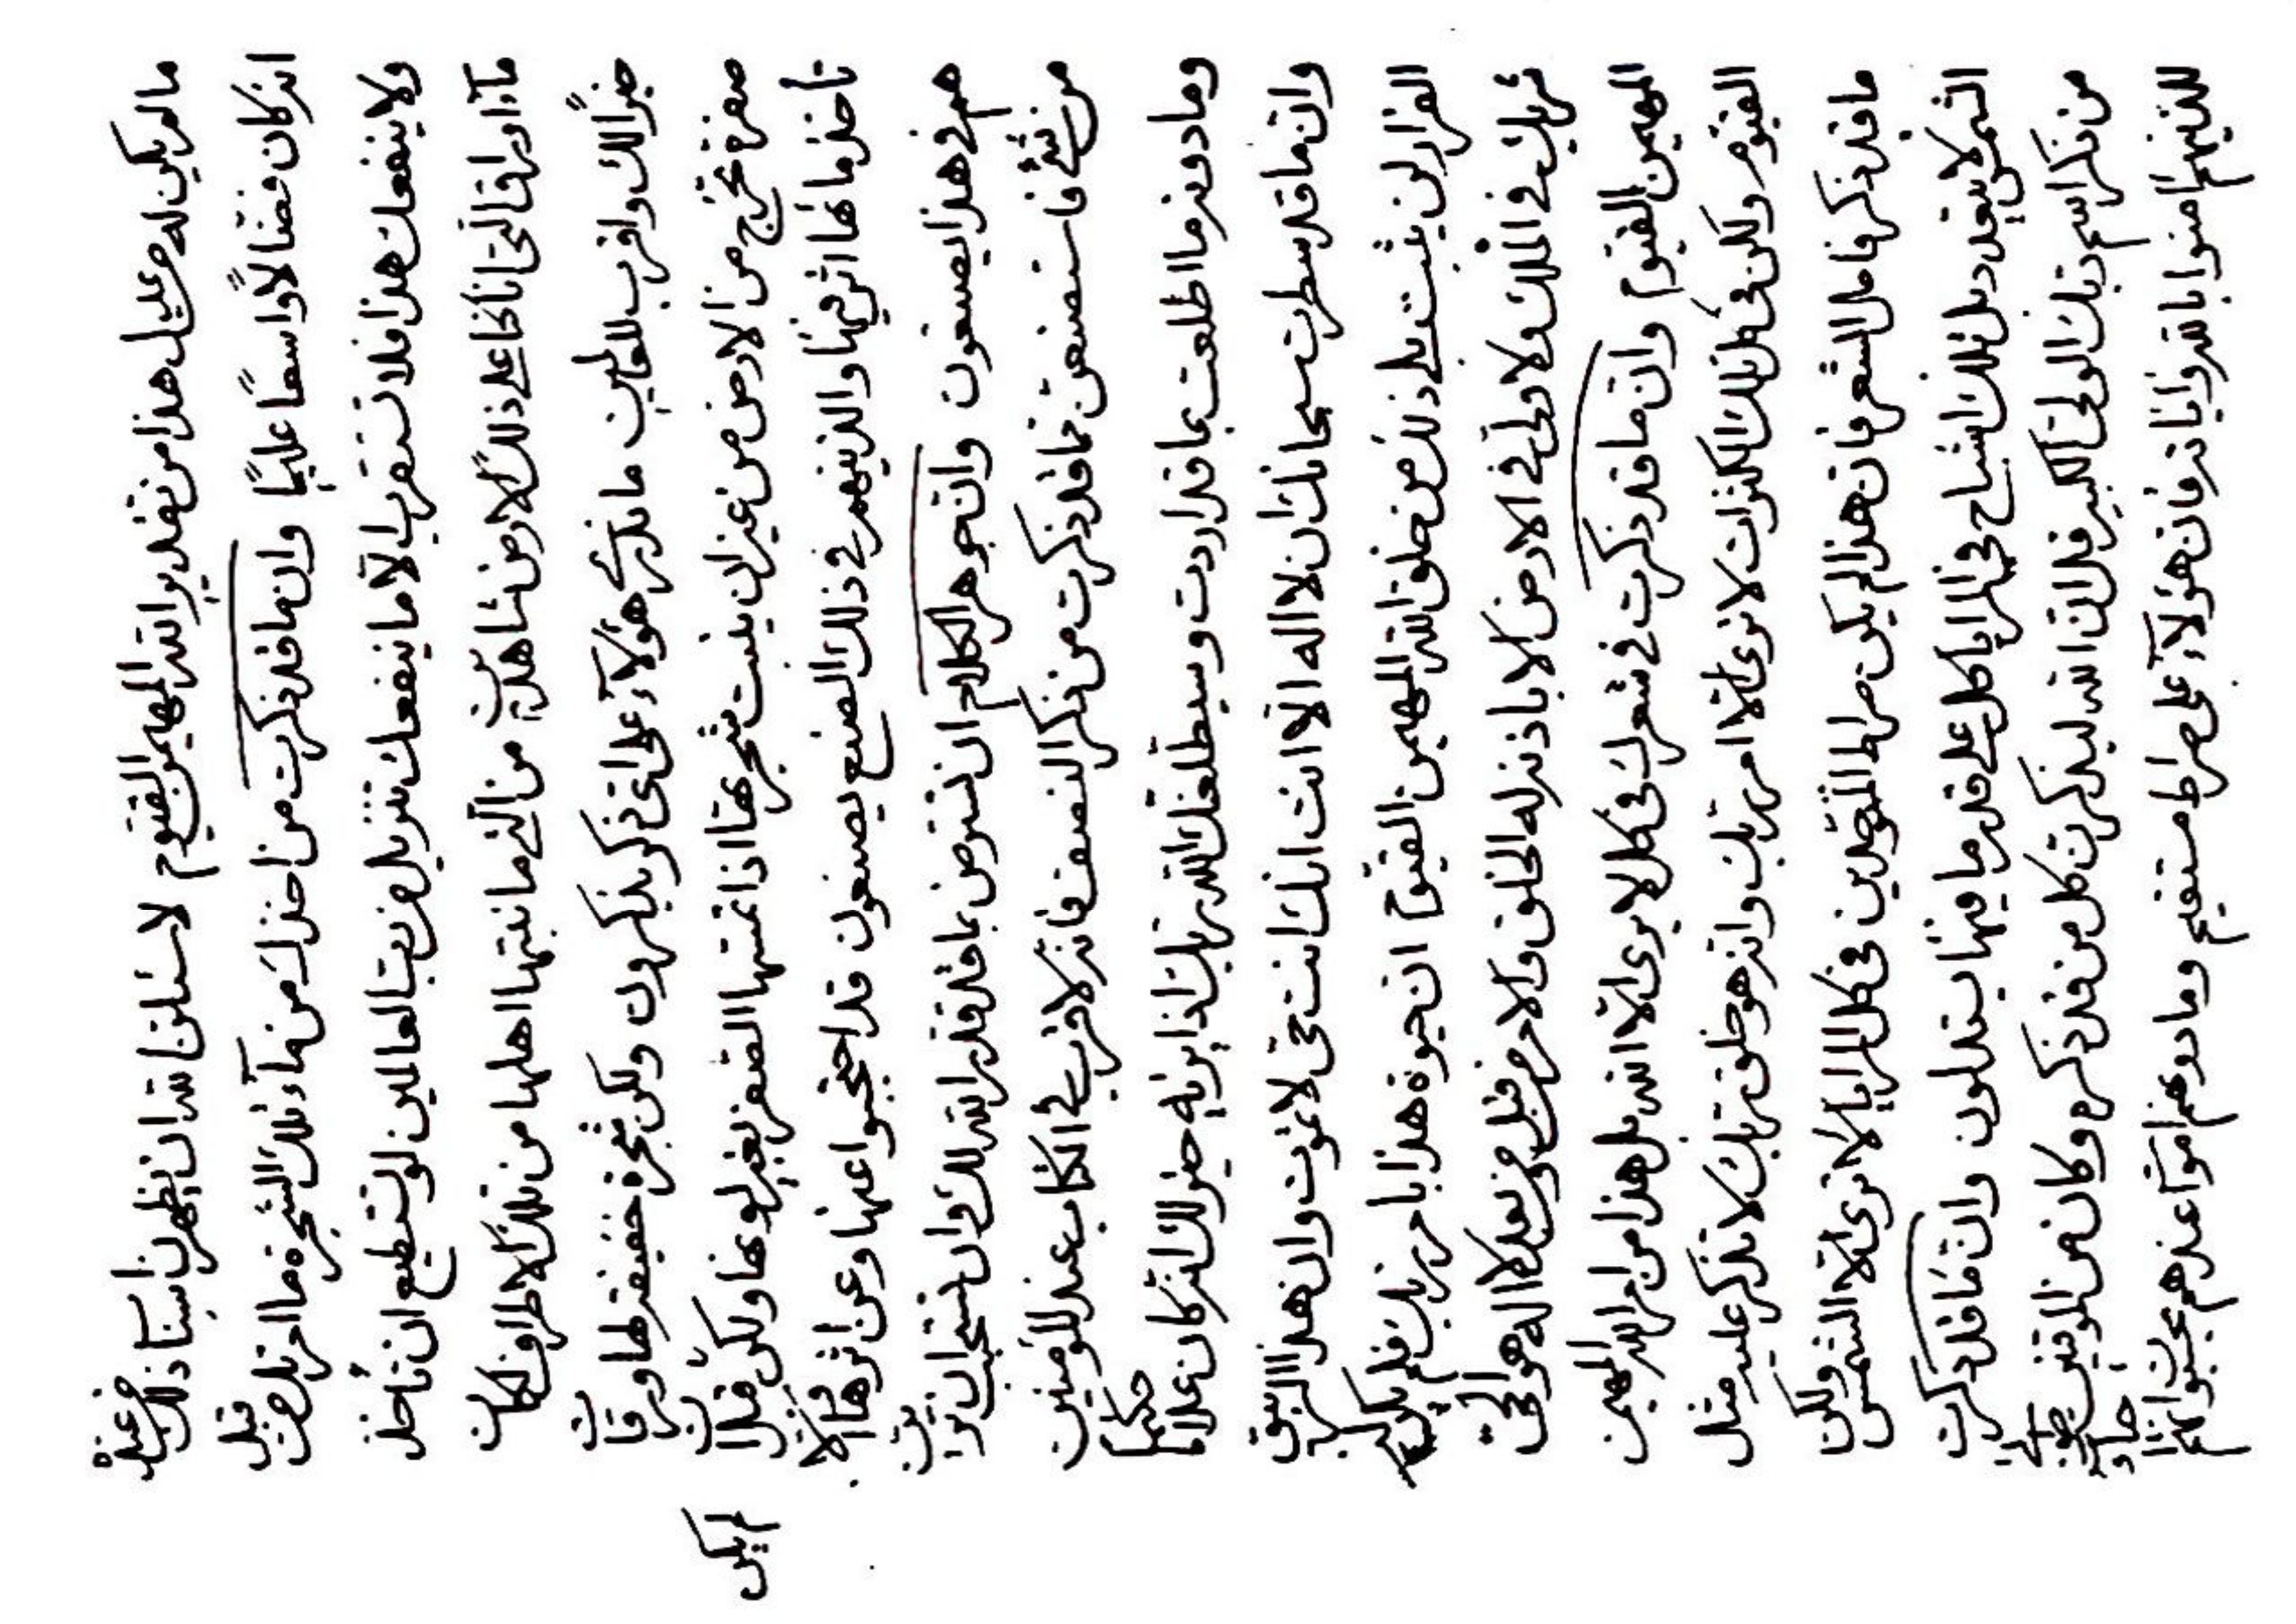 مالم یکن له عدیل هذا من تقدیر الله المهیمن القیوم لاسئلن الله ان یظهرن اسباب ذلک من عنده
انه کان فضالاً واسعاً علیماً وان ما قد ذکرت من اخذک من مآء تلک الشجرة ما تلک من قبل
ولا ینفعک هذا فلا تستقرب الا ما ینفعک تنزیل من رب العالمین لو تستطیع ان تأخذ
مآء اوراق التی انا کنا علی ذلک الارض شاهدین من الذی ما نبتها اهلها من تلک الاطراف لکان
خیراً لک واقرب للعالمین ما ندری هؤلآء علی ای ذکر یذکرون ولکن شجرة خفیفة لها ورقات
صفرة تخرج من الارض من غیر ان ینبت شجرتها اذا تمسها الصفر یغیر لونها ولکن قد لم یکن
تأخذ مائها اثر فیها والذینهم فی ذلک الصنع یصنعون قد احتجبوا عنها وعن اثرها الا
هم فی هذا یصنعون وان جوهر الکلام ان ترض بما قد قدر الله لک وان
من شئ فاستصنعن مما قد ذکرت من ذکر النصف فانه لاقرب فی الکتاب عند المؤمنین
وما دونه ما اطلعت بما قد اردت وسیطلعنک الله ربک اذا یرید خیر لک انه کان علاما حکیما
وان ما قد سطرت سبحانک ان لا اله الا انت انک انت حی لا تموت وان هذا الزیبق
الفرار لن یثبت بلی ذلک من خلق الله المهیمن القیوم ان حیوة هذا بامر ربک فلم یکن له
شریک فی الملک ولا ولی فی الارض الا باذنه له الخلق والامر من قبل ومن بعد لا اله هو الحی
المهیمن القیوم وان ما قد ذکرت فی شعرک فی کل لا یری الا الله بل هذا من امر الله المهیمن
القیوم ولکن فی تلک الکثرات لا نری الا امر ربک وانه هو خلق ربک لا تذکر علیه مثل
ما قد ذکر قامل الشعر فان هذا لم یکن صراط الموحدین فی کل المرایا لا نری الا الشمس ولکن
الشمس لا تعدد بل تلک اشباح فی المرایا کل علی قدر ما فیها یستدلون وان ما قد ذکرت
من ذکر اسم ربک الولی الکبیر قد ان الله لیذکرن کل من قد ذکره وکان من الموقنین
للذینهم امنوا بالله وایاته فان هؤلآء علی صراط مستقیم وما دونهم امواتا عندهم